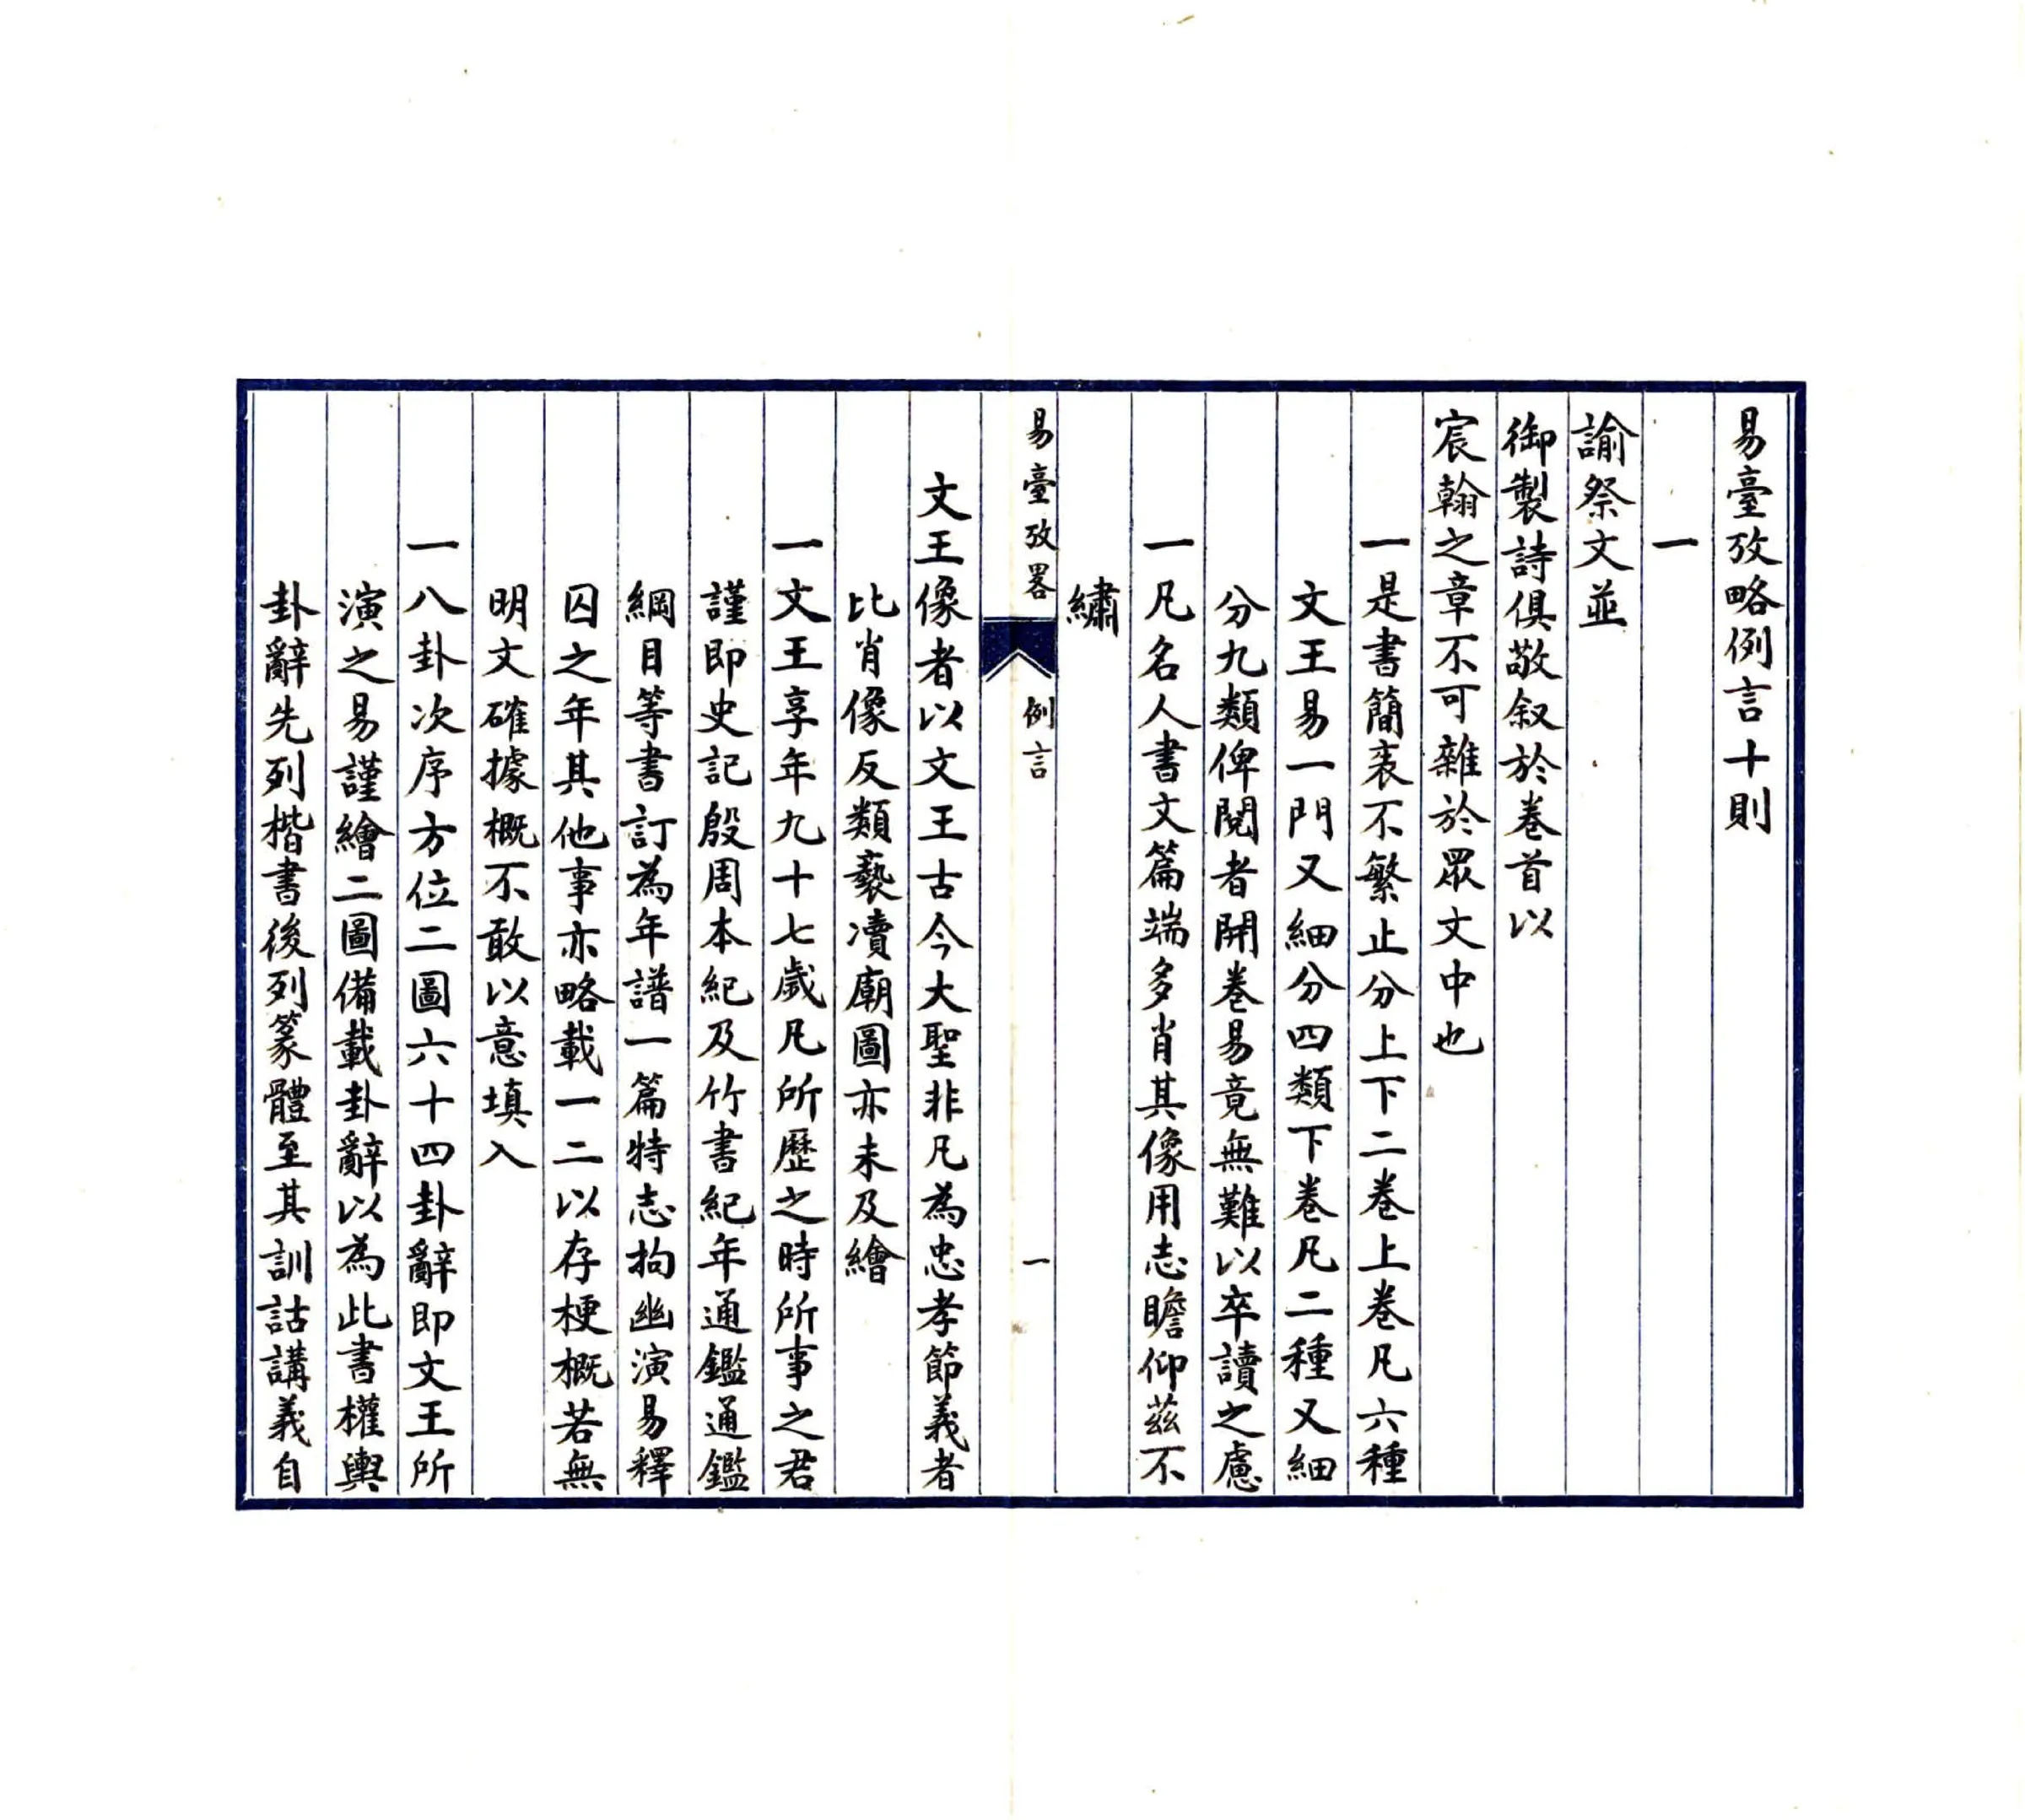 易臺攷略例言十則
一
諭祭文並
御製詩俱敬叙於卷首以
宸翰之章不可雜於眾文中也
一是書簡袠不繁止分上下二卷上卷凡六種
文王易一門又細分四類下卷凡二種又細
分九類俾閱者開卷易竟無難以卒讀之慮
一凡名人書文篇端多肖其像用志瞻仰茲不
繡
易臺攷畧
例言
一
文王像者以文王古今大聖非凡為忠孝節義者
比肖像反類褻瀆廟圖亦未及繪
一文王享年九十七歲凡所歷之時所事之君
謹即史記殷周本紀及竹書紀年通鑑通鑑
綱目等書訂為年譜一篇特志拘幽演易釋
囚之年其他事亦略載一二以存梗概若無
明文確據概不敢以意填入
一八卦次序方位二圖六十四卦辭即文王所
演之易謹繪二圖備載卦辭以為此書權輿
卦辭先列楷書後列篆體至其訓詁講義自